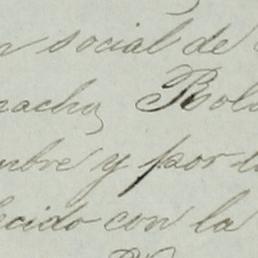 n social de
nacha, Bola
mbre y por l
lecido con la